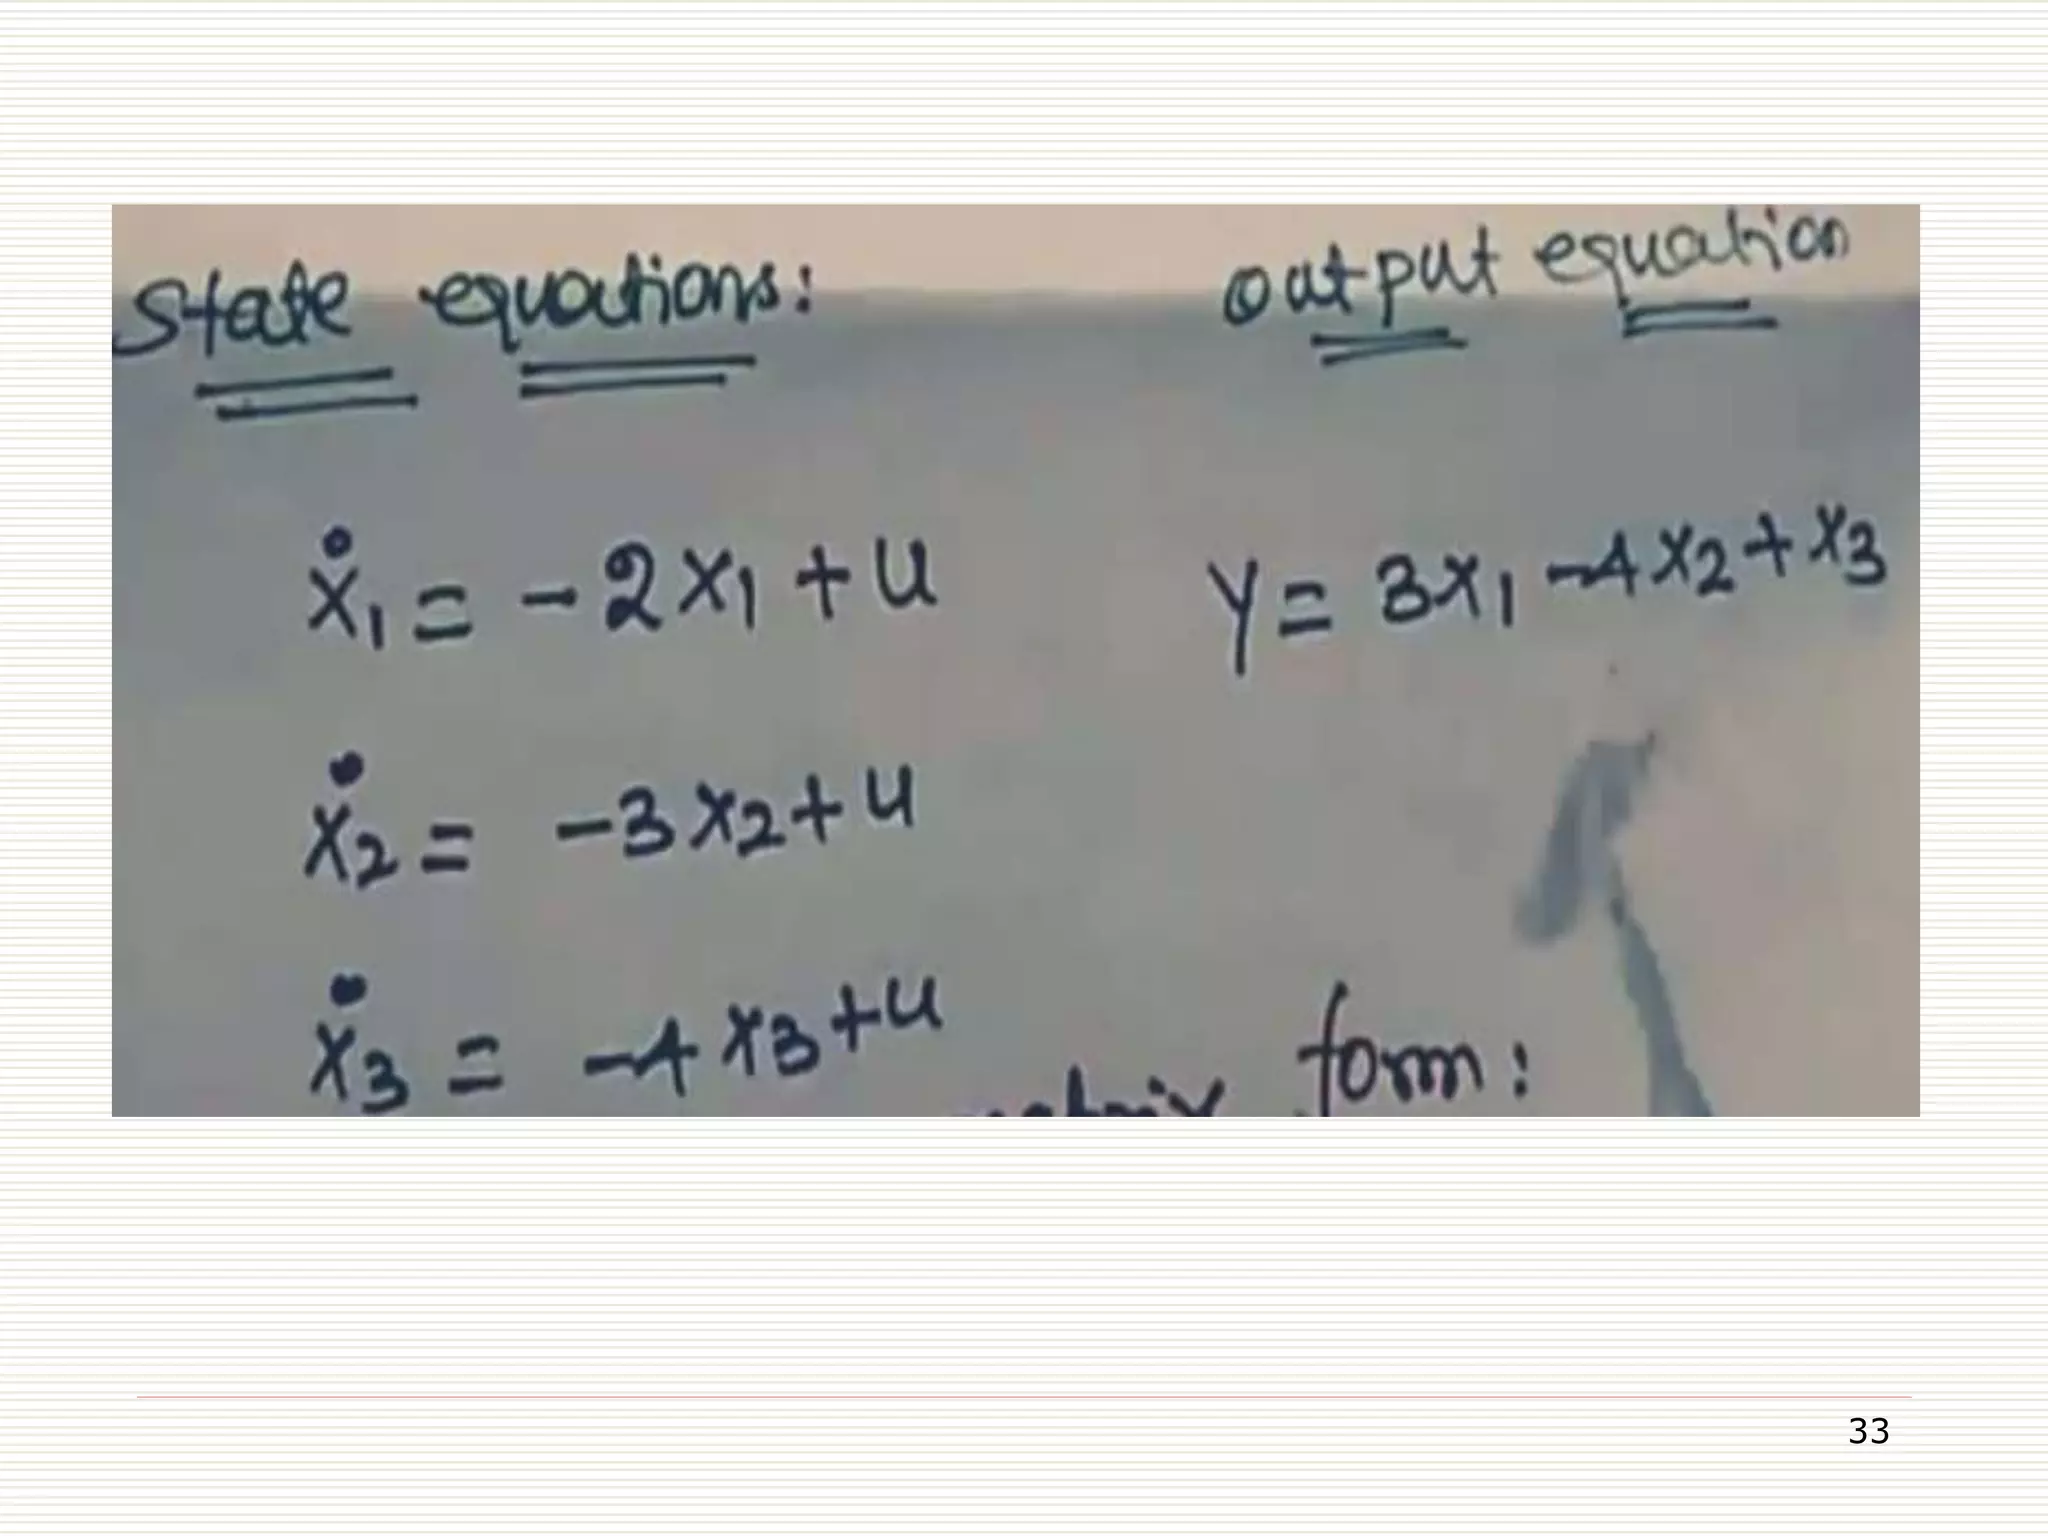 State equations:
output equation
ẋ₁ = -2x₁ + u
y = 3x₁ -4x₂ + x₃
ẋ₂ = -3x₂ + u
ẋ₃ = -4x₃ + u
form:
33